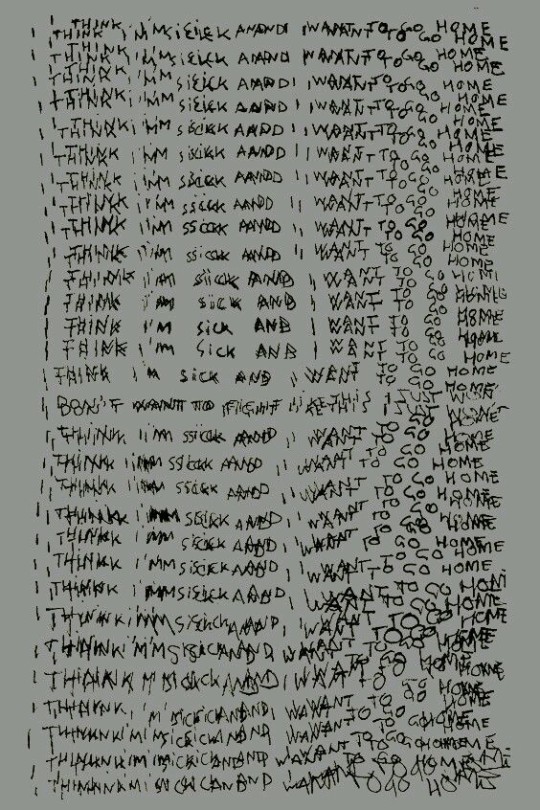 I THINK I'M SICK AND I WANT TO GO HOME
I THINK I'M SICK AND I WANT TO GO HOME
I THINK I'M SICK AND I WANT TO GO HOME
I THINK I'M SICK AND I WANT TO GO HOME
I THINK I'M SICK AND I WANT TO GO HOME
I THINK I'M SICK AND I WANT TO GO HOME
I THINK I'M SICK AND I WANT TO GO HOME
I THINK I'M SICK AND I WANT TO GO HOME
I THINK I'M SICK AND I WANT TO GO HOME
I THINK I'M SICK AND I WANT TO GO HOME
I THINK I'M SICK AND I WANT TO GO HOME
I THINK I'M SICK AND I WANT TO GO HOME
I THINK I'M SICK AND I WANT TO GO HOME
I THINK I'M SICK AND I WANT TO GO HOME
I THINK I'M SICK AND I WENT TO GO HOME
I DON'T WANT TO FIGHT LIKE THIS I JUST
I THINK I'M SICK AND I WANT TO GO HOME
I THINK I'M SICK AND I WANT TO GO HOME
I THINK I'M SICK AND I WANT TO GO HOME
I THINK I'M SICK AND I WANT TO GO HOME
I THINK I'M SICK AND I WANT TO GO HOME
I THINK I'M SICK AND I WANT TO GO HOME
I THINK I'M SICK AND I WANT TO GO HOME
I THINK I'M SICK AND I WANT TO GO HOME
I THINK I'M SICK AND I WANT TO GO HOME
I THINK I'M SICK AND I WANT TO GO HOME
I THINK I'M SICK AND I WANT TO GO HOME
I THINK I'M SICK AND I WANT TO GO HOME
I THINK I'M SICK AND I WANT TO GO HOME
I THINK I'M SICK AND I WANT TO GO HOME